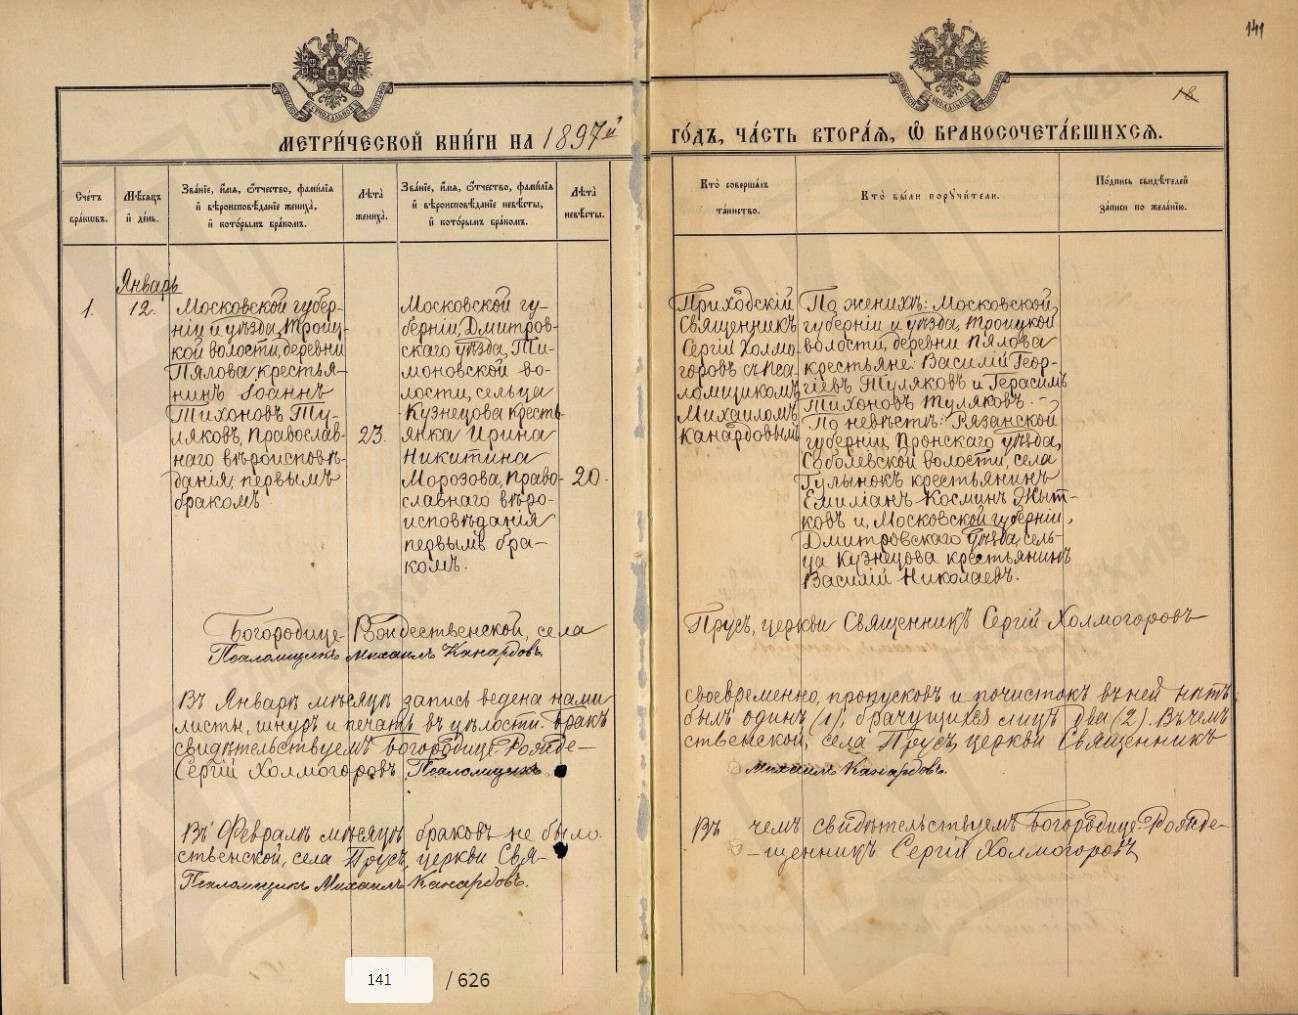 141
18
МЕТРИЧЕСКОЙ КНИГИ НА 1897й
ГОДЪ, ЧАСТЬ ВТОРАЯ, Ѡ БРАКОСОЧЕТАВШИХСЯ.
Счетъ браковъ.
Мѣсяцъ и день.
Званіе, имя, отчество, фамилія
и вѣроисповѣданіе жениха,
и которымъ бракомъ.
Лѣта жениха.
Званіе, имя, отчество, фамилія
и вѣроисповѣданіе невѣсты,
и которымъ бракомъ.
Лѣта невѣсты.
Кто совершалъ
таинство.
Кто были поручители.
Подпись свидѣтелей
записи по желанію.
Январь
1.
12.
Московской губер-
ніи и уѣзда, Троиц-
кой волости, деревни
Пялова крестья-
нинъ Іоаннъ
Тихоновъ Ту-
ляковъ, Православ-
наго вѣроисповѣ-
данія, первымъ
бракомъ
23.
Московской гу-
берніи, Дмитров-
скаго уѣзда, Ти-
моновской во-
лости, сельца
Кузнецова кресть-
янка Ирина
Никитина
Морозова, Право-
славнаго вѣро-
исповѣданія
первымъ бра-
комъ.
20.
Приходскій
Священникъ
Сергій Холмо-
горовъ съ пса-
ломщикомъ
Михаиломъ
Канардовымъ
По женихѣ: Московской
губерніи и уѣзда, Троицкой
волости, деревни Пялова
крестьяне: Василій Геор-
гіевъ Туляковъ и Герасимъ
Тихоновъ Туляковъ. -
По невѣстѣ: Рязанской
губерніи, Пронскаго уѣзда,
Соболевской волости, села
Гулынокъ крестьянинъ
Емиліанъ Косминъ Жыт-
ковъ и, Московской губерніи,
Дмитровскаго уѣзда, сель-
ца Кузнецова крестьянинъ
Василій Николаевъ.
Богородице-Рождественской, села
Прусъ, церкви Священникъ Сергій Холмогоровъ
Псаломщикъ Михаилъ Канардовъ.
Въ Январѣ мѣсяцѣ запись ведена нами
своевременно, пропусковъ и почистокъ въ ней нѣтъ,
листы, шнуръ и печать въ цѣлости. Бракъ
былъ одинъ (1), брачущихся лицъ два (2). Въ чемъ
свидѣтельствуемъ Богородице-Рожде-
ственской, села Прусъ, церкви Священникъ
Сергій Холмогоровъ, Псаломщикъ
Михаилъ Канардовъ.
Въ Февралѣ мѣсяцѣ браковъ не было.
Въ чемъ свидѣтельствуемъ Богородице-Рожде-
ственской, села Прусъ, церкви Свя-
-щенникъ Сергій Холмогоровъ
Псаломщикъ Михаилъ Канардовъ.
141 / 626